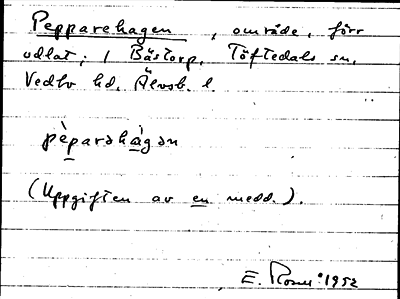 Pepparehagen , område, förr
odlat; i Båstorp, Töftedals sn,
Vedbo hd, Älvsb. l.
pèparəhàgən
(Uppgiften av en medd.).
E. 1952